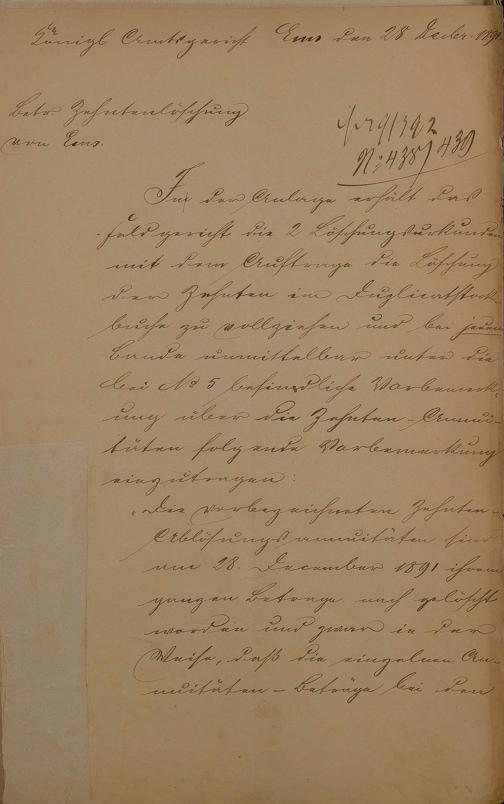 Königl Amtsgericht Ems den 28 Decbr. 1891
Betr. Zehntenlöschung
von Ems.
No 438 / 439
In der Anlage erhält das
Feldgericht die 2 Löschungsurkunden
mit dem Auftrage die Löschung
der Zehnten im Duplicatstock-
buche zu vollziehen und bei jedem
Bande unmittelbar unter die
bei No 5 befindliche Vorbemerk-
ung über die Zehnten-Annui-
täten folgende Vorbemerkung
einzutragen:
„Die vorbezeichneten Zehnten-
Ablösungsannuitäten sind
am 28. December 1891 ihrem
ganzen Betrage nach gelöscht
worden und zwar in der
Weise, daß die einzelnen An-
nuitäten-Beträge bei den